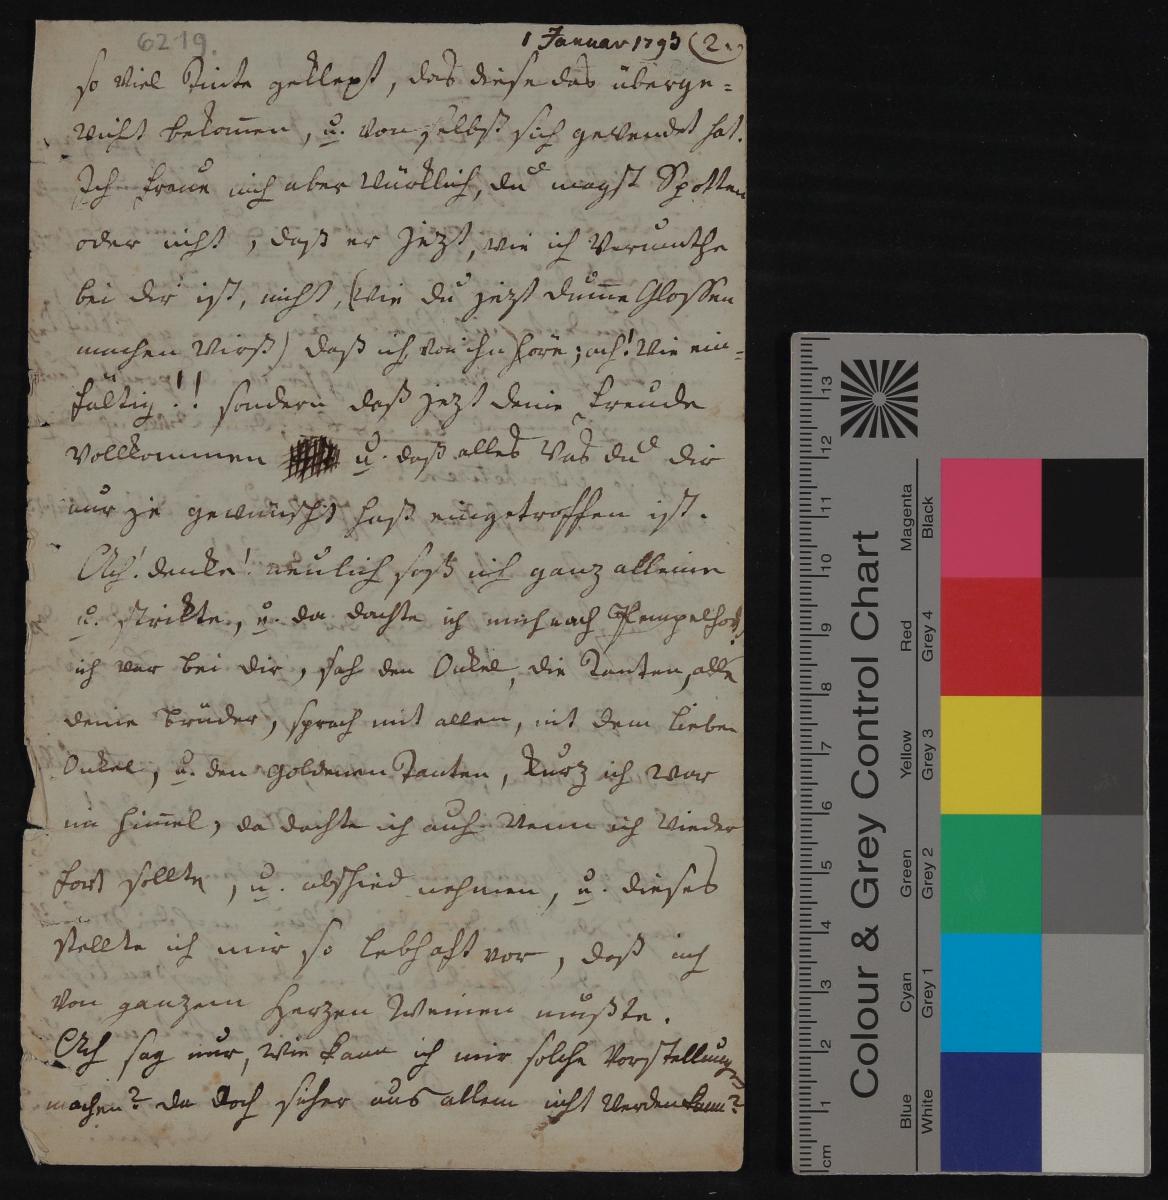 6219.
1 Januar 1793 (2.)
so viel Tinte geklext, das diese das überge=
wicht bekom̅en, u. von selbst sich gewendet hat.
Ich freue mich aber würklich, du magst Spotten
oder nicht, daß er jezt, wie ich Vermuthe
bei dir ist, nicht, (wie du jezt dum̅e Glossen
machen wirst) daß ich von ihn höre; ach! wie ein=
fältig!! sondern daß jezt deine freude
vollkommen u. daß alles was du dir
nur je gewünscht hast eingetroffen ist.
Ach! denke! neulich saß ich ganz alleine
u. strikte, u. da dachte ich mich nach Pempelfort,
ich war bei dir, sah den Onkel, die Tanten, alle
deine Brüder, sprach mit allen, mit dem lieben
Onkel, u. den goldenen Tanten, kurz ich war
im him̅el, da dachte ich auch wenn ich wieder
fort sollte, u. abschied nehmen, u. dieses
stellte ich mir so lebhaft vor, daß ich
von ganzem Herzen Weinen mußte.
Ach sag nur, wie kann ich mir solche Vorstellung
machen? da doch sicher aus allem nicht werden kann?
Colour & Grey Control Chart
Blue Cyan Green Yellow Red Magenta
White Grey 1 Grey 2 Grey 3 Grey 4 Black
cm 1 2 3 4 5 6 7 8 9 10 11 12 13